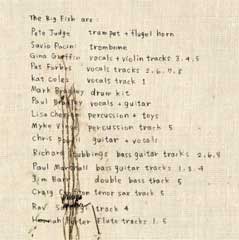 The Big Fish are
Pete Judge trumpet + flugel horn
Savio Pacini trombone
Gina Griffin vocals + violin tracks 3.4.5
Pat Forbes vocals tracks 2.6.7.8
kat coles vocals track 1
Mark Bradley drum kit
Paul Bradley vocals + guitar
Lisa percussion + toys
Myke percussion track 5
chris guitar + vocals
Richard bass guitar tracks 2.6.8
Paul bass guitar tracks 1.2.4
Jim double bass track 5
Craig tenor sax track 6
Rav track 4
Hannah Flute tracks 1.5